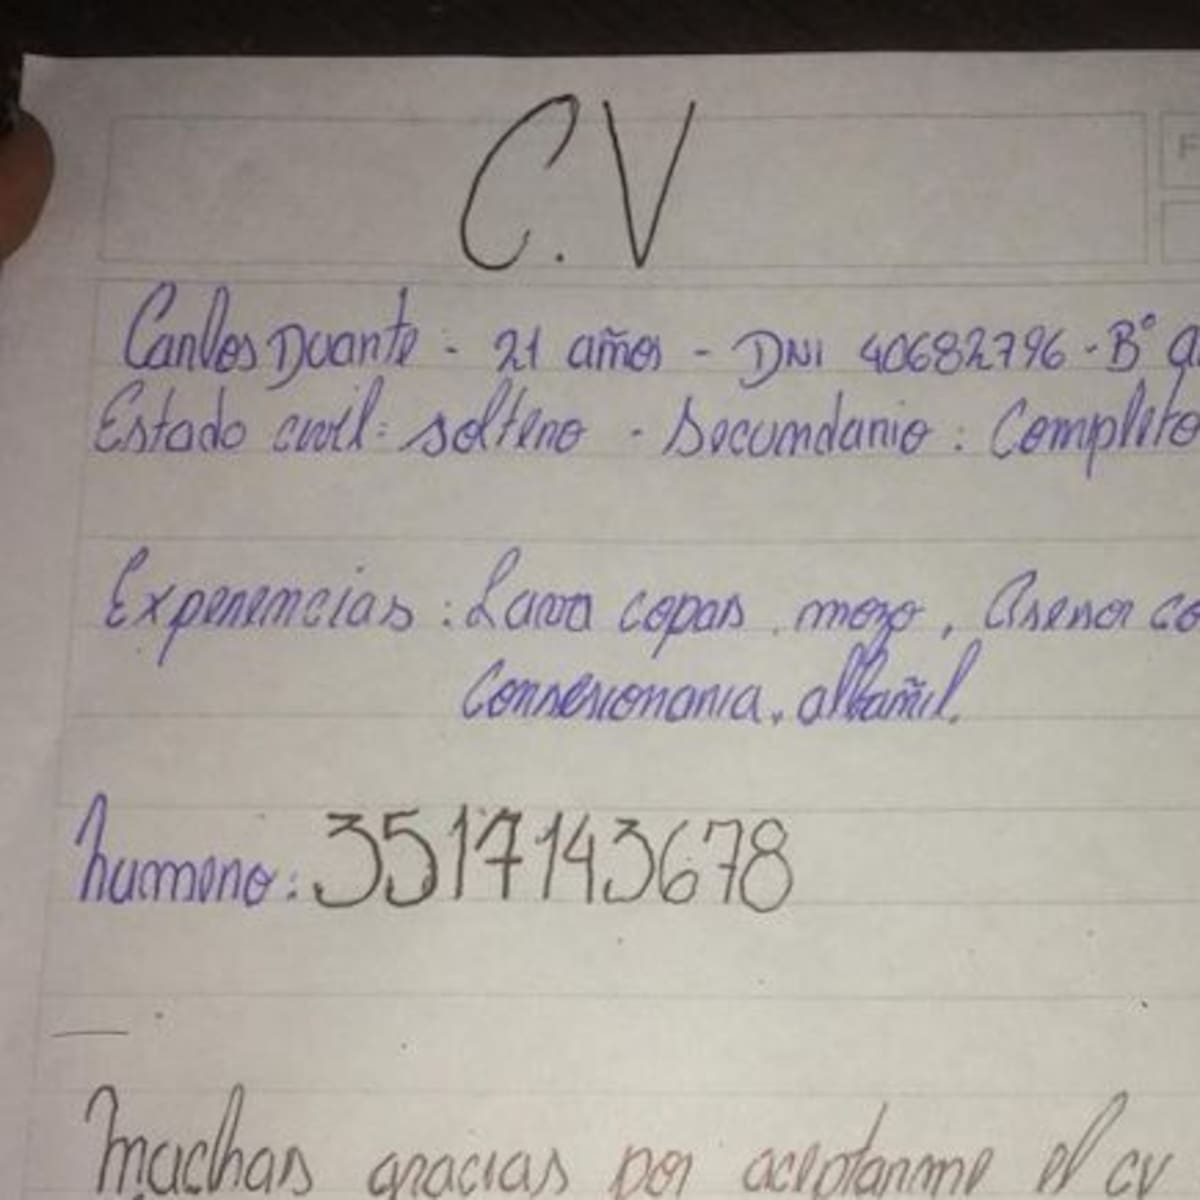 C.V
Carlos Duarte - 21 años - DNI 40682796 - B°
Estado civil: soltero - Secundario: Completo
Experiencias: Lava copas, mozo, Asesor co
Consesionaria, albañil.
numero: 3517143678
Muchas gracias por aceptarme el cv